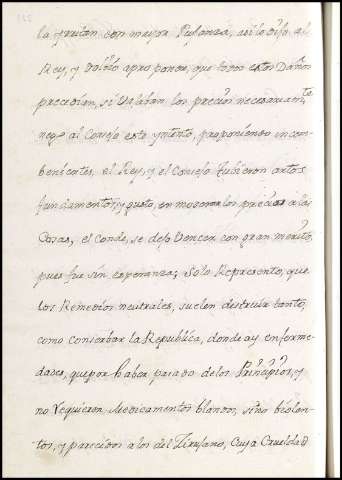 la gratan con mayor Pujanza, asi lo dijo al
Rey, y volvio a proponer, que todos estos Daños
precedian, si bajaban los precios necesariamte
nego al Consejo este yntento, proponiendo incon-
benientes, el Rey, y el Consejo tubieron artos
fundamentos, y gusto, en moderar los precios a las
Cosas, el Conde, se dejo Vencer con gran merito,
pues fue sin esperanza; Solo Represento, que
los Remedios neutrales, suelen destruir tanto,
como conserbar la Republica, donde ay enferme-
dades, que por haber pasado de los Principios, y
no requieren Medicamentos blandos, sino biolen-
tos, y parecidos a los del Zirujano, Cuya Crueldad